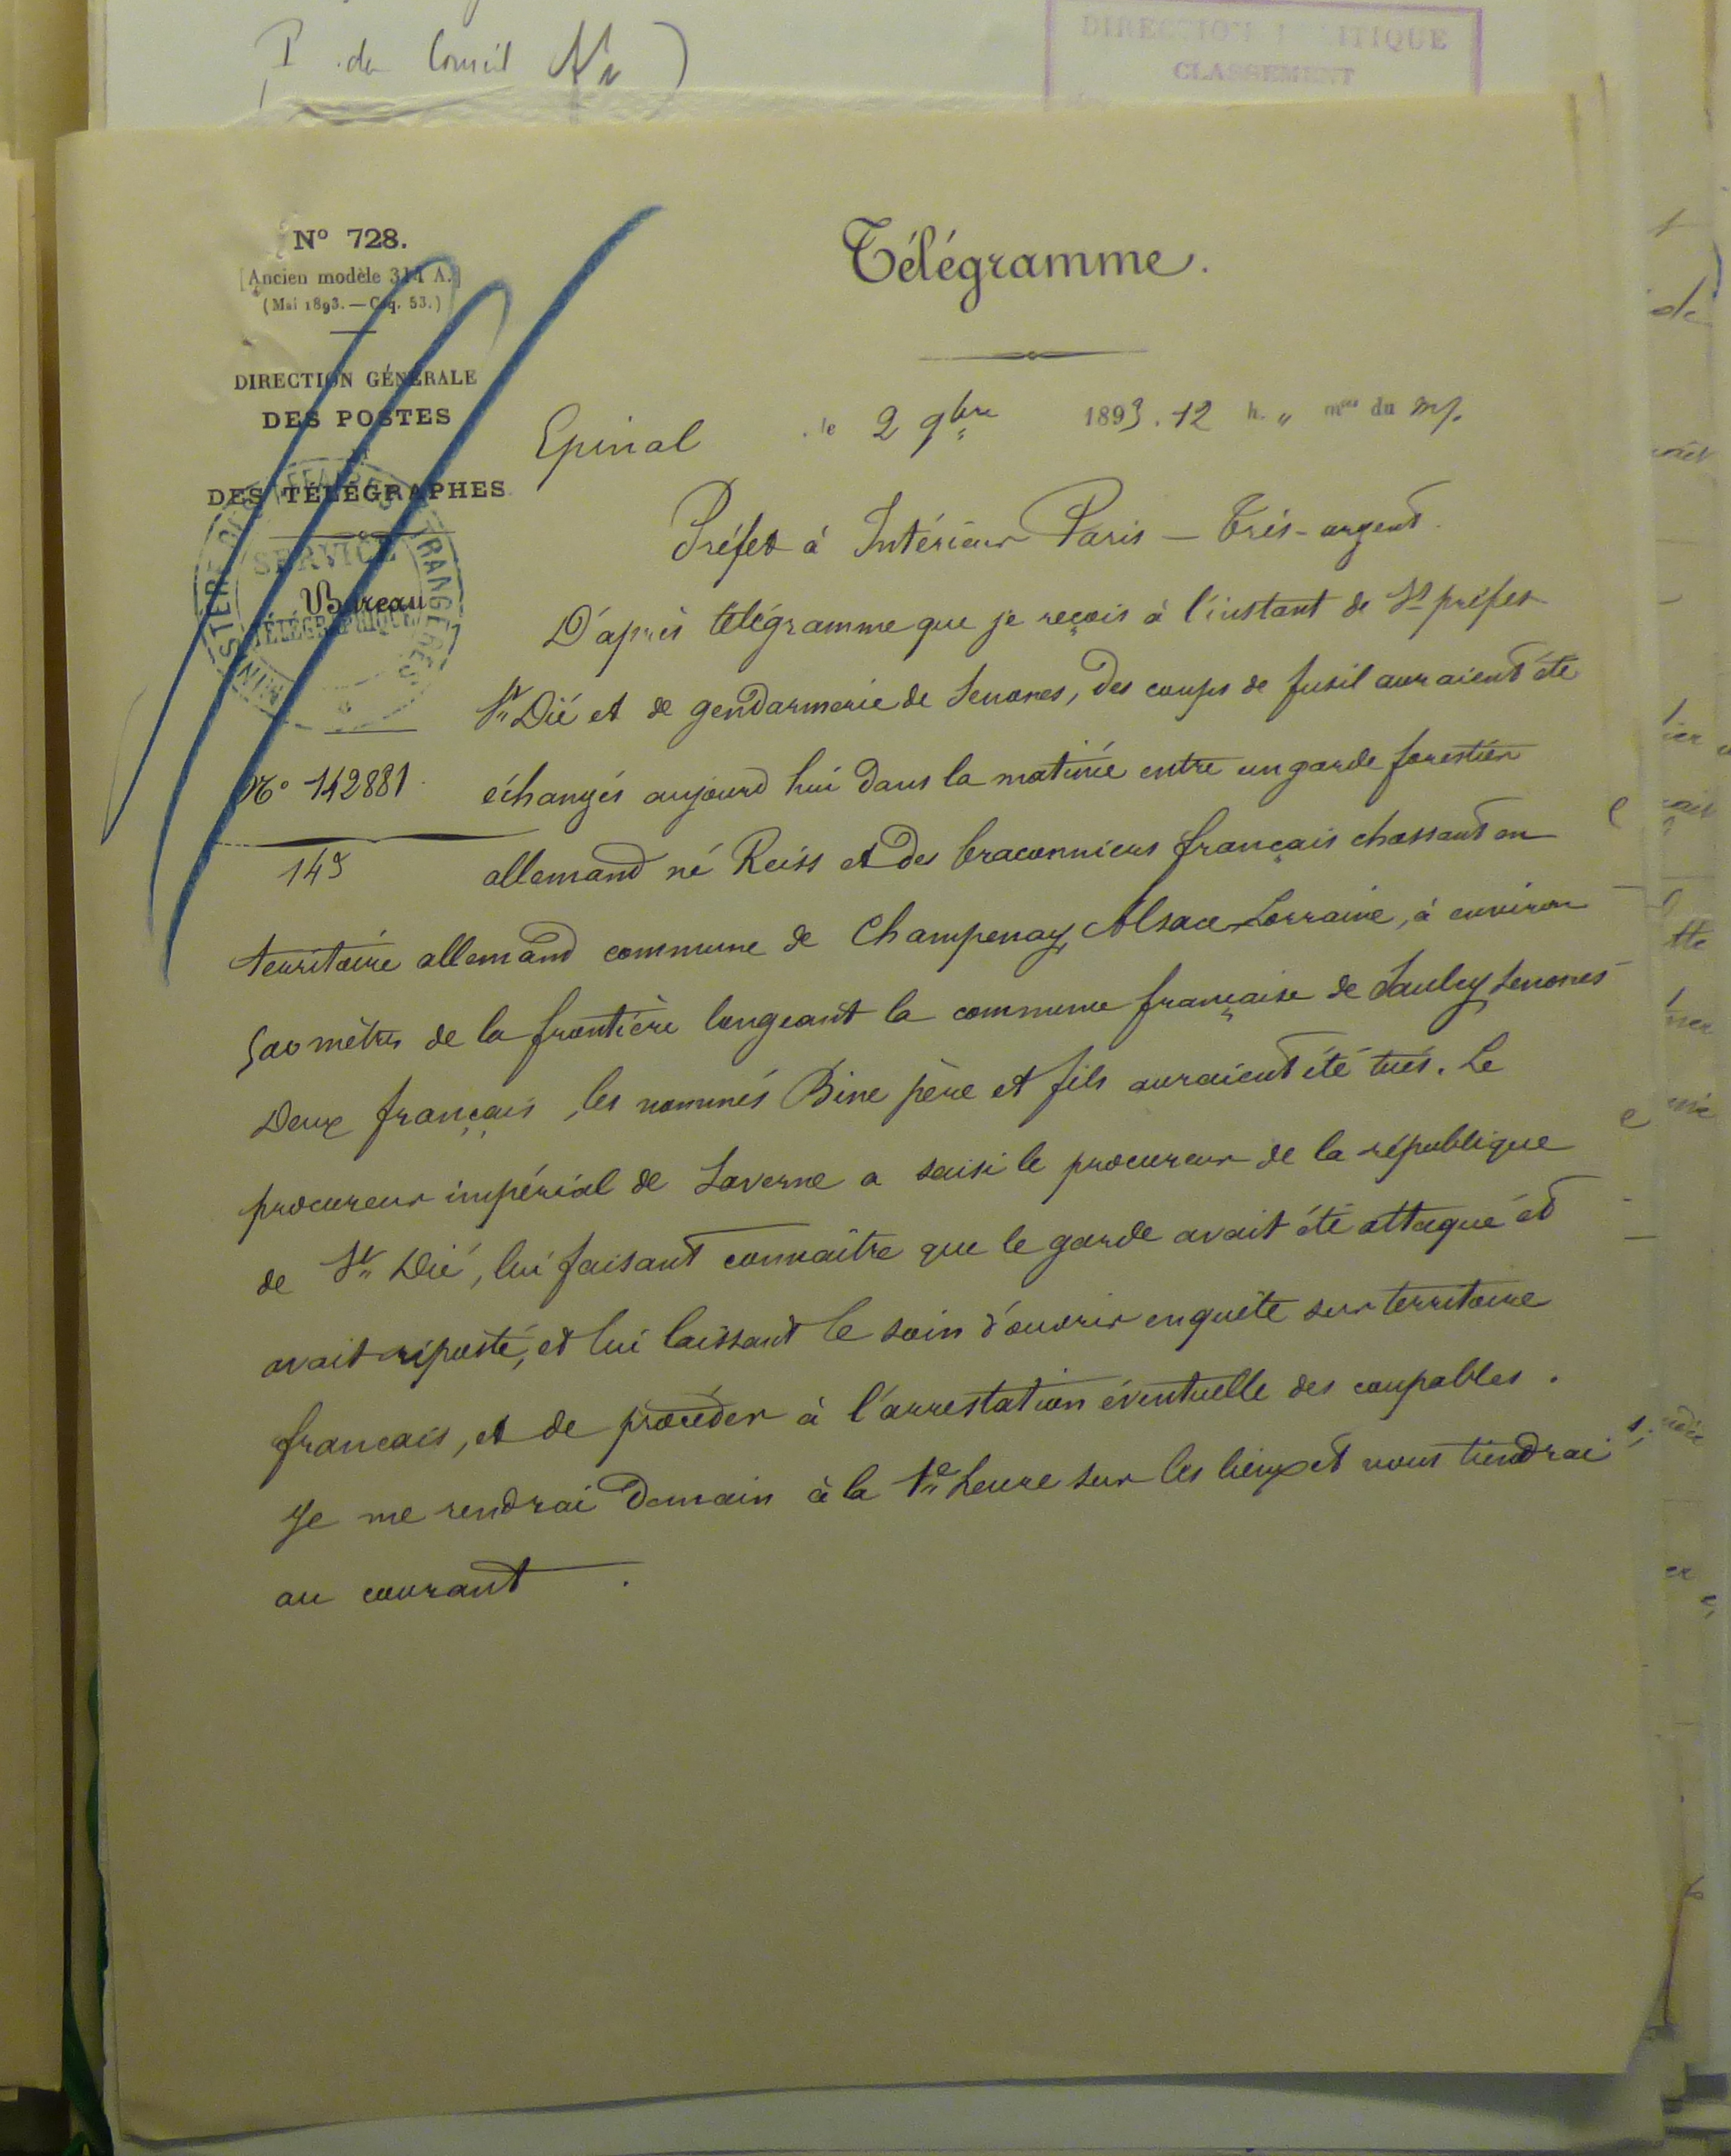 du Conseil
DIRECTION POLITIQUE
CLASSEMENT
No 728.
[Ancien modèle 314 A.]
(Mai 1893. — Coq. 53.)
DIRECTION GÉNÉRALE
DES POSTES
ET
DES TÉLÉGRAPHES
MINISTÈRE DES AFFAIRES ETRANGÈRES
SERVICE
TÉLÉGRAPHIQUE
Bureau
No 142881
Télégramme.
Epinal, le 2 9bre 1893. 12 h. " mes du
Préfet à Intérieur Paris — Très-urgent.
D'après télégramme que je reçois à l'instant de Ss préfet
St Dié et de gendarmerie de Senones, des coups de fusil auraient été
échangés aujourd hui dans la matinée entre un garde forestier
allemand né Reiss et des braconniers français chassant en
territoire allemand commune de Champenay, Alsace-Lorraine, à environ
500 mètres de la frontière longeant la commune française de Saulcy Senones
Deux français, les nommés Bine père et fils auraient été tués. Le
procureur impérial de Saverne a saisi le procureur de la république
de St Dié, lui faisant connaître que le garde avait été attaqué et
avait riposté, et lui laissant le soin d'ouvrir enquête sur territoire
francais, et de procéder à l'arrestation éventuelle des coupables.
Je me rendrai demain à la 1e heure sur les lieux et vous tiendrai
au courant.